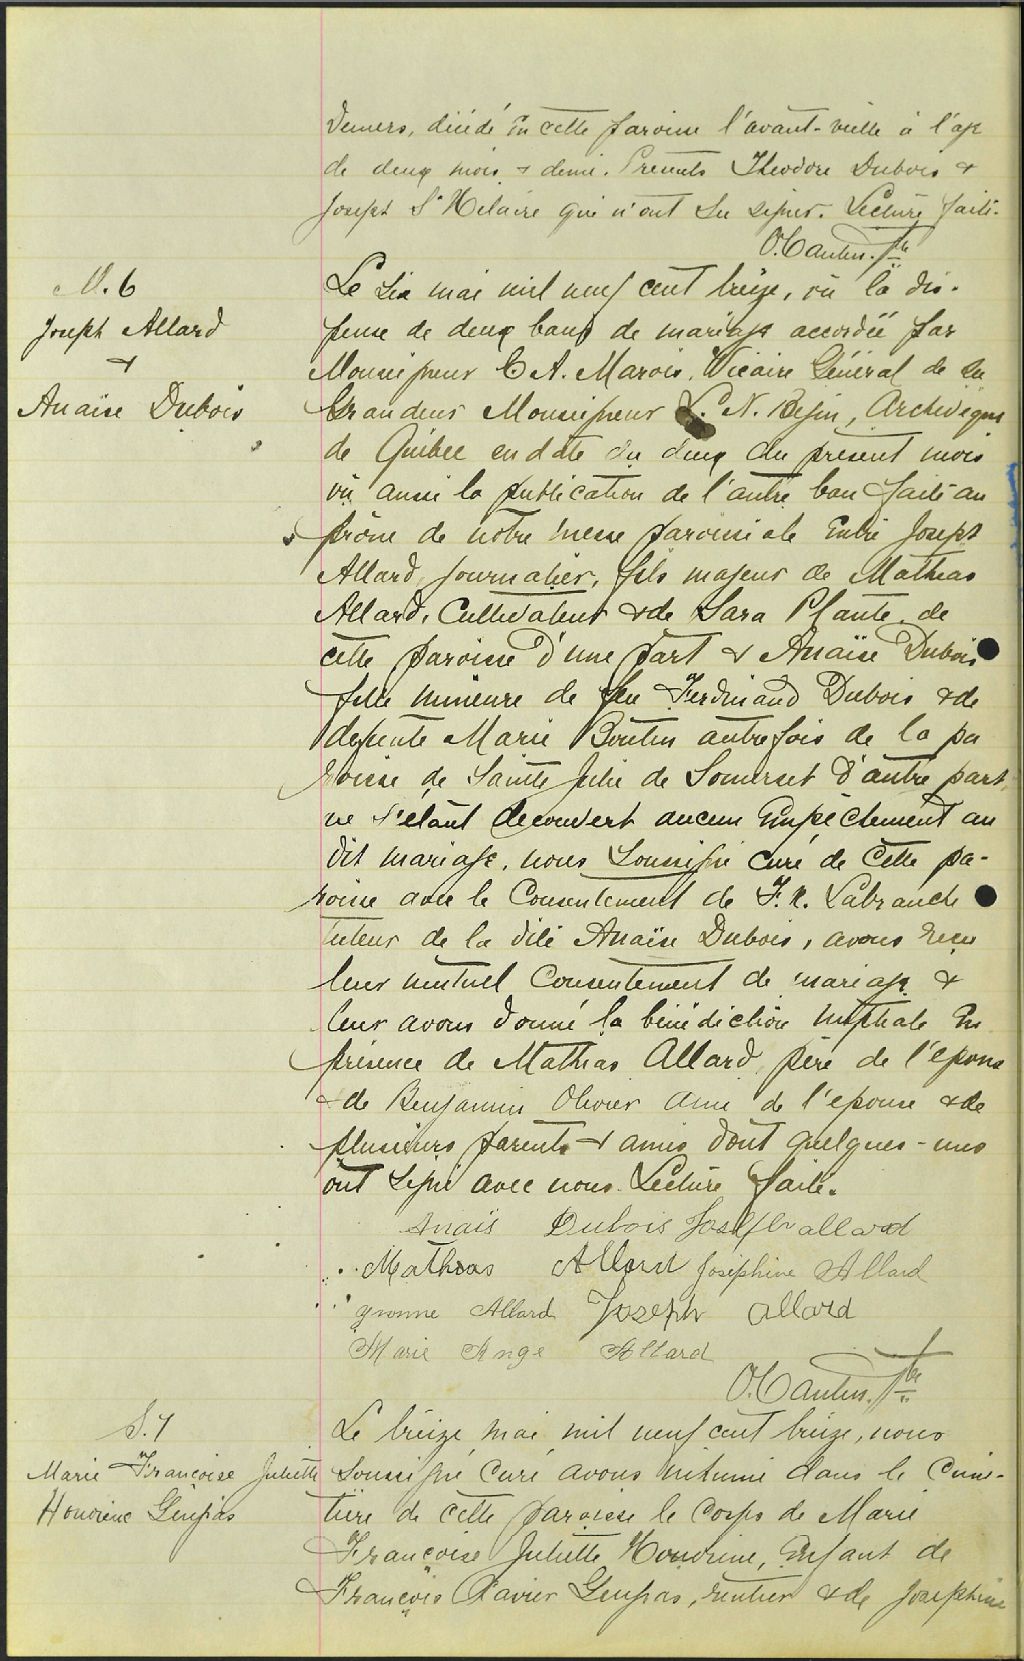 Demers, décédé en cette paroisse l'avant-veille à l'age
de deux mois & demi. Presents Theodore Dubois &
Joseph St Hilaire qui n'ont su signer. Lecture faite.
O. Cantin. Ptre
M. 6
Joseph Allard
&
Anaïse Dubois
Le six mai mil neuf cent treize, vu la dis-
pense de deux bans de mariage accordée par
Monseigneur C. A. Marois, Vicaire Général de Sa
Grandeur Monseigneur L. N. Begin, Archevêque
de Québec en date du deux du présent mois
vu aussi la publication de l'autre ban faite au
prône de notre messe paroissiale entre Joseph
Allard, journalier, fils majeur de Mathias
Allard, Cultivateur & de Sara Plante, de
cette paroisse d'une part & Anaïse Dubois
fille mineure de feu Ferdinand Dubois & de
defunte Marie Boutin autrefois de la pa
roisse de Sainte Julie de Somerset d'autre part
ne s'étant decouvert aucun Empêchement au
dit mariage, nous Soussigné curé de cette pa-
roisse avec le Consentement de F. X. Labranche
tuteur de la dite Anaïse Dubois, avons reçu
leur mutuel Consentement de mariage &
leur avons donné la bénédiction nuptiale En
présence de Mathias Allard, père de l'epoux
& de Benjamin Olivier ami de l'epouse & de
plusieurs parents & amis dont quelques-uns
ont signé avec nous. Lecture faite.
Anais Dubois Joseph allard
Mathias Allard Josephine Allard
yvonne Allard Joseph allard
Marie Ange Allard
O. Cantin. Ptre
S. 7
Marie Françoise Juliette
Honorine Gingras
Le treize mai mil neuf cent treize, nous
Soussigné Curé avons inhumé dans le Cime-
tière de cette paroisse le Corps de Marie
Françoise Juliette Honorine, Enfant de
François Xavier Gingras, rentier & de Josephine